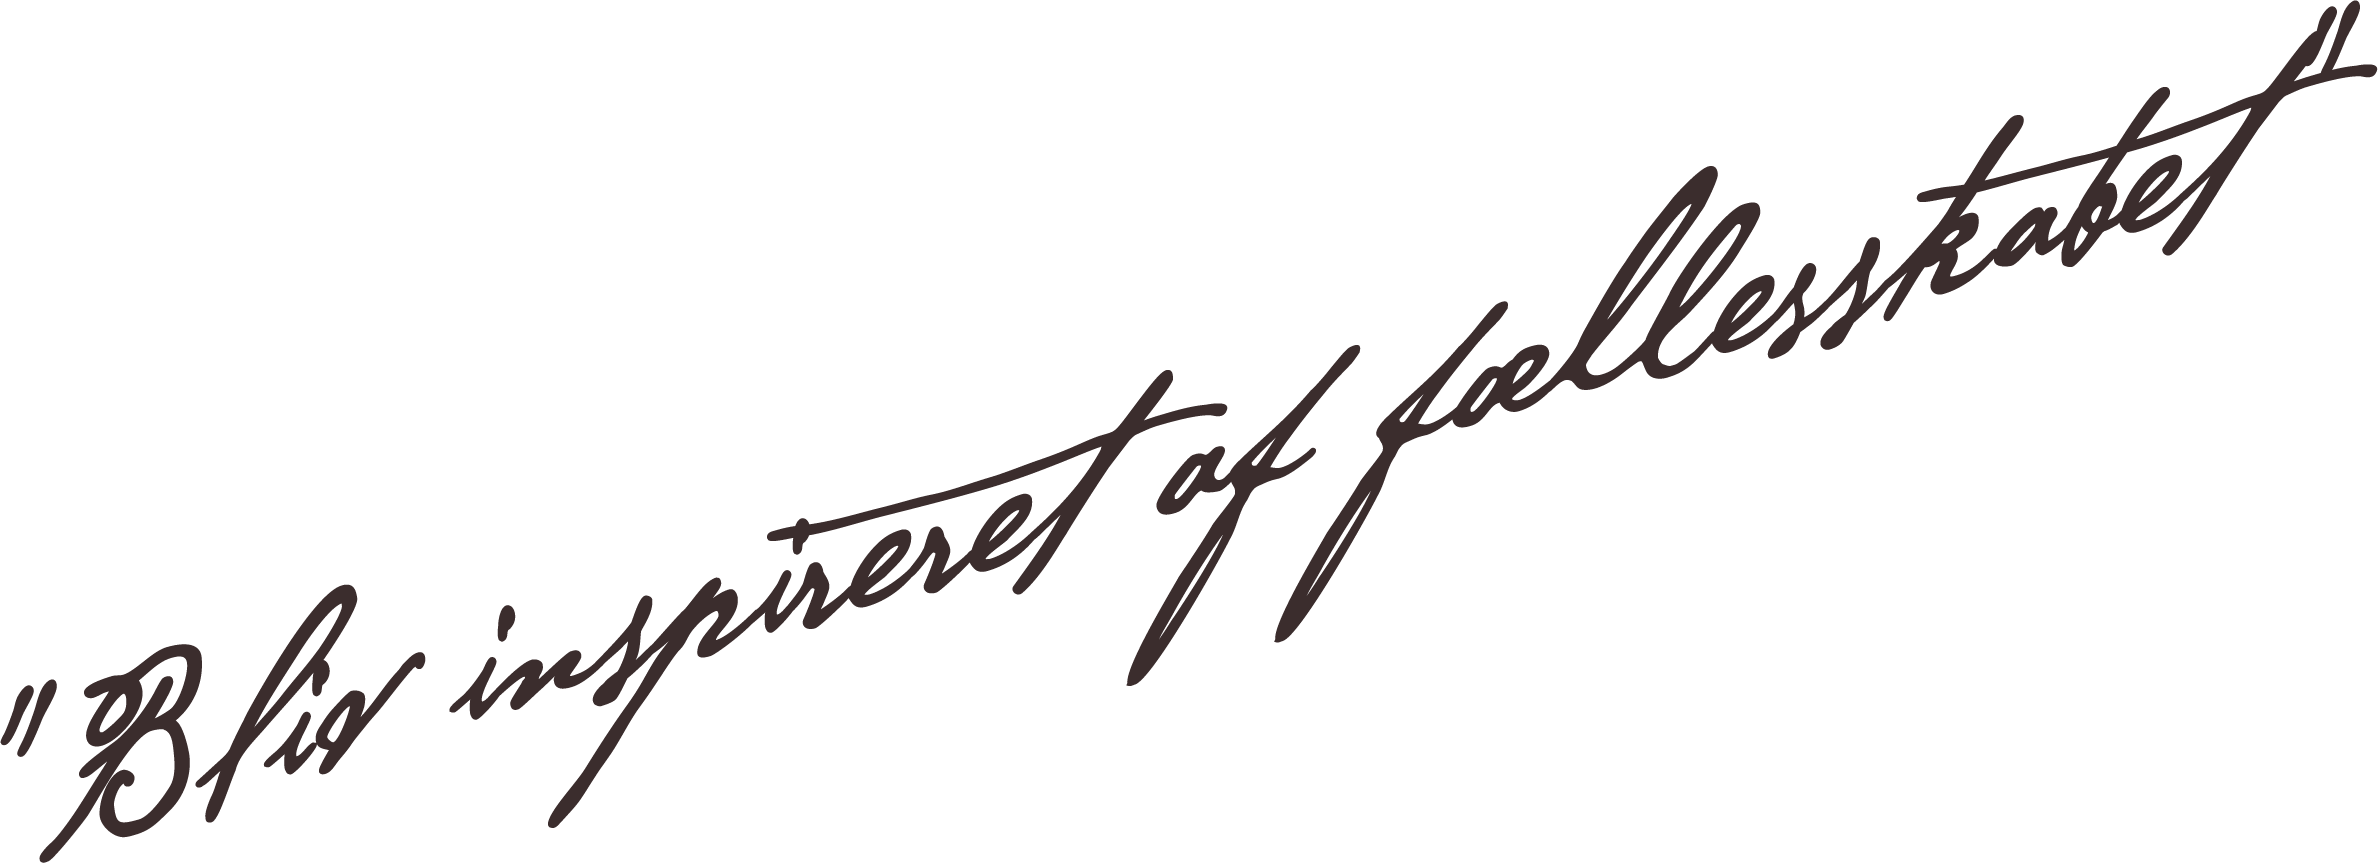 "Bliv inspireret af fællesskabet"